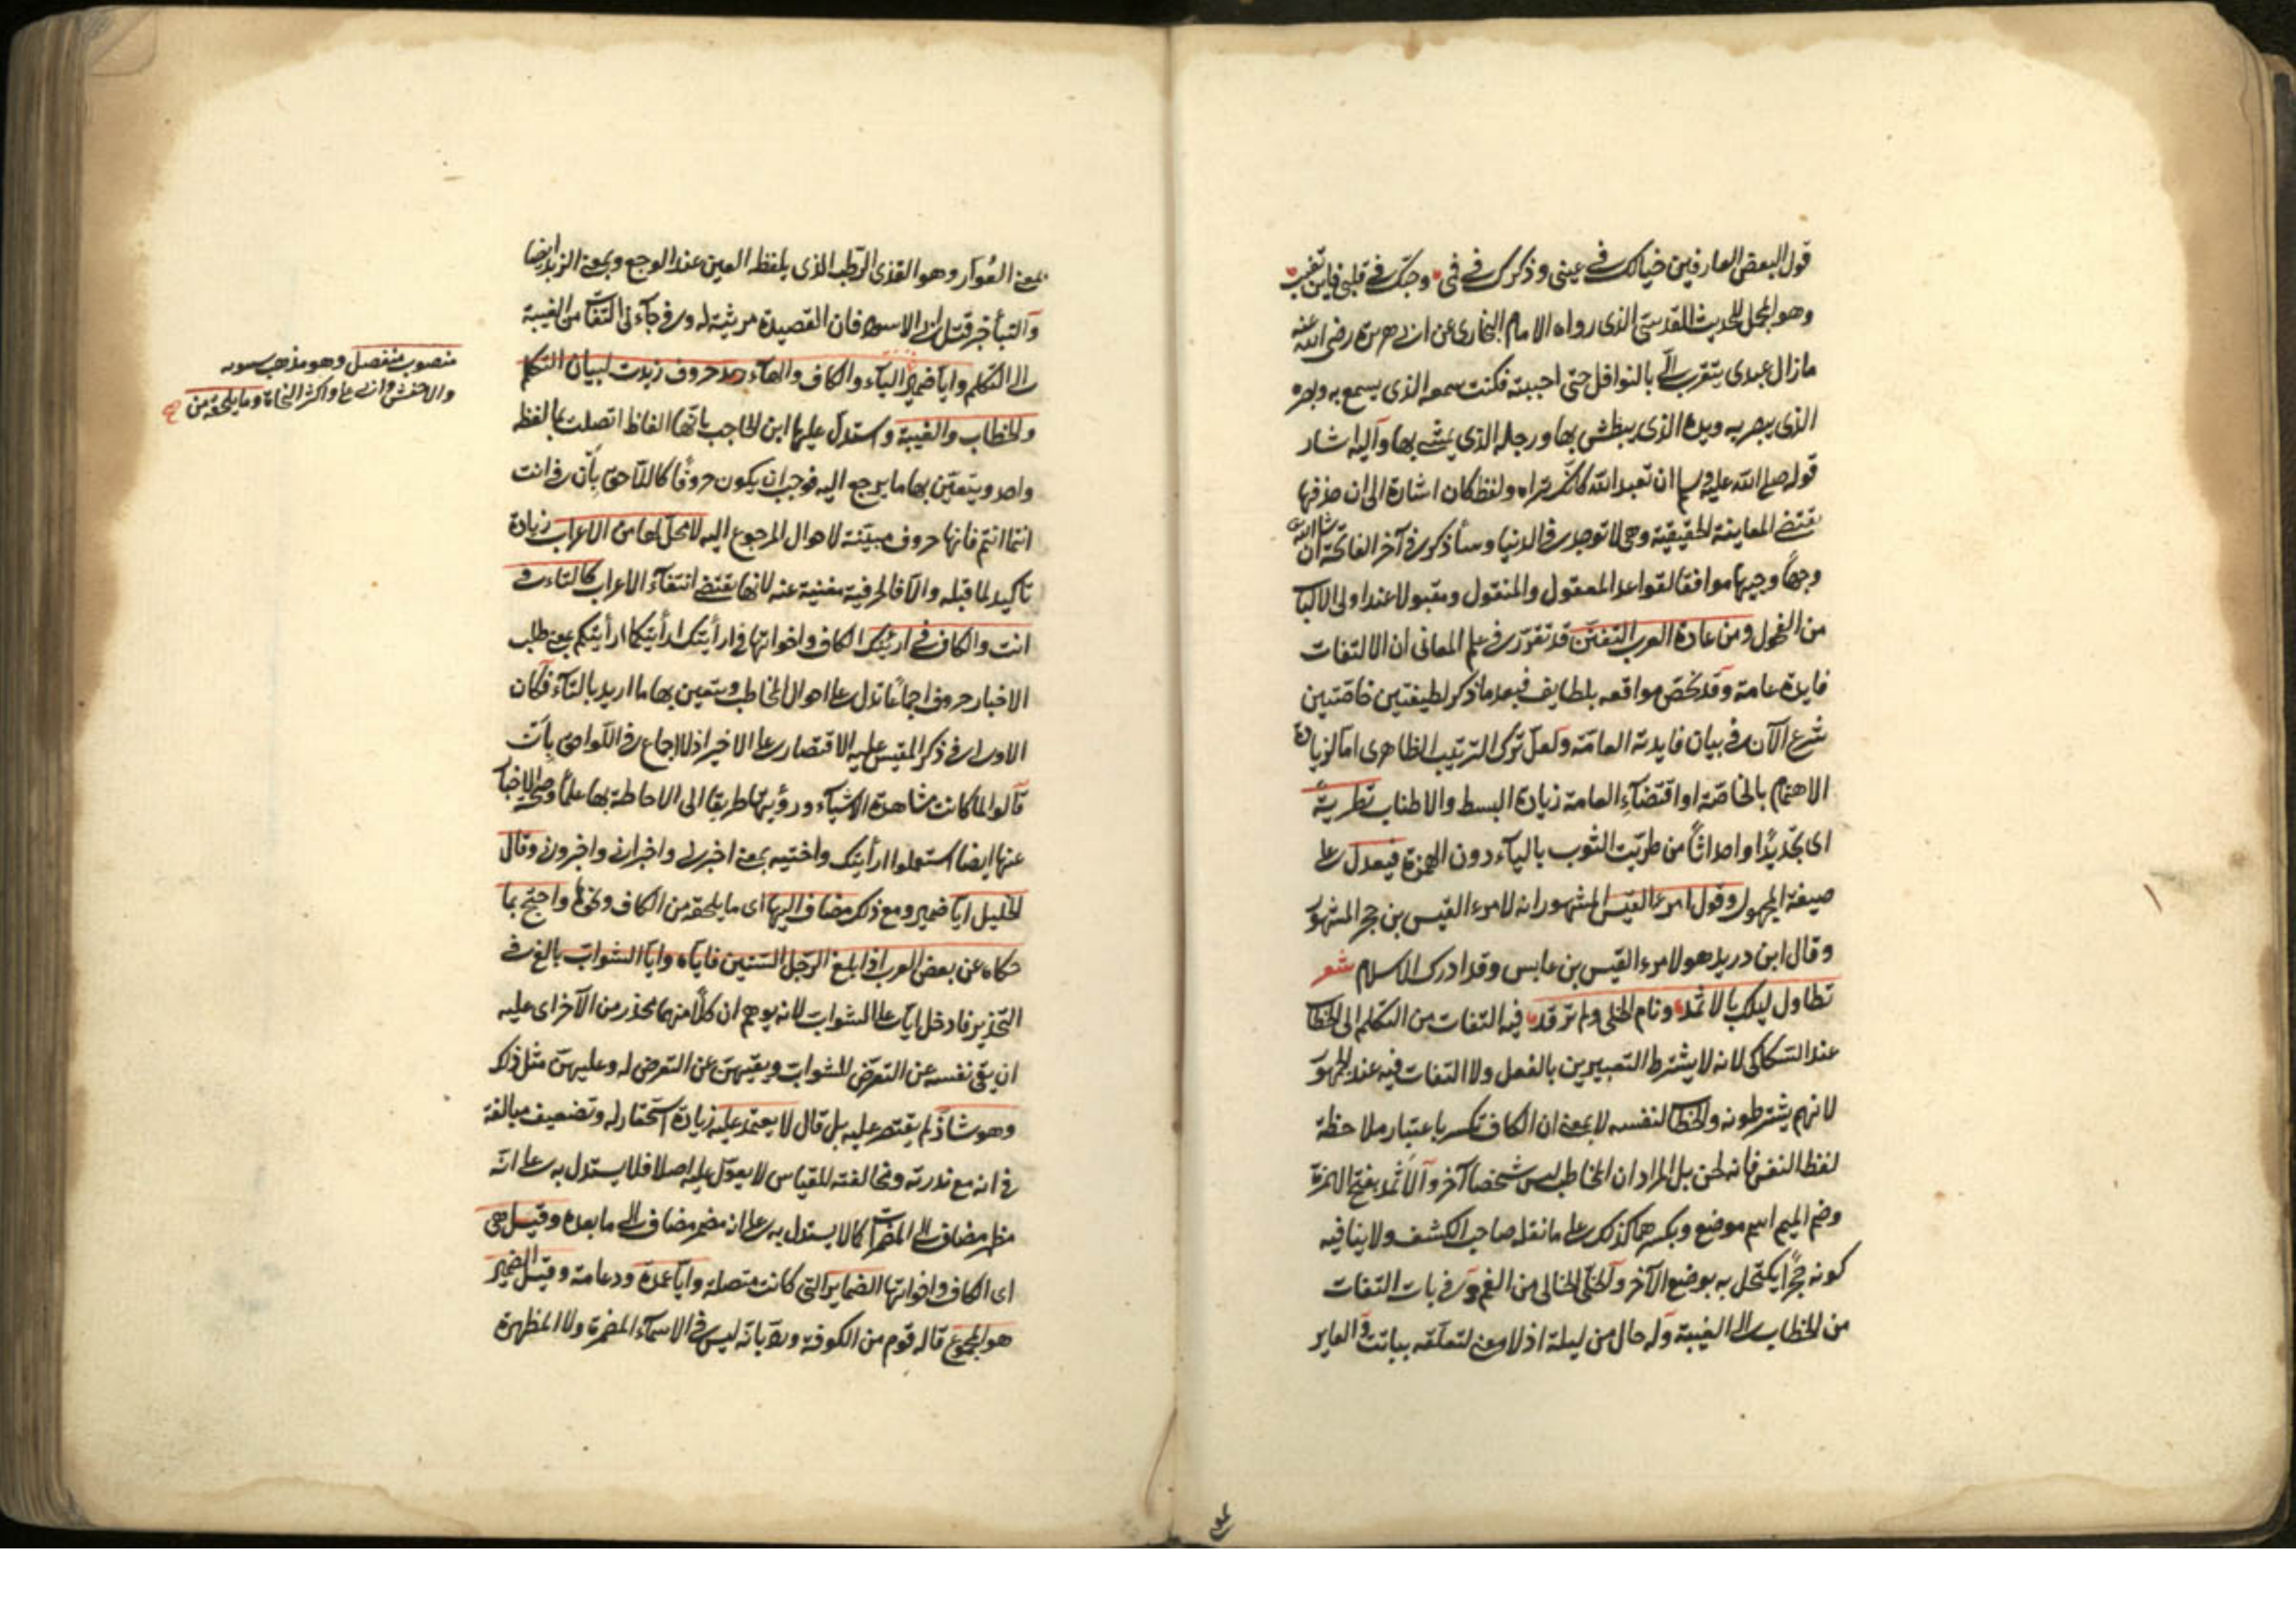 قول البعض العارفين خيالك في عيني وذكرك في فمي وحبك في قلبي فاين تغيب
وهو المجمل للحديث القدسي الذي رواه الامام البخاري عن ابي هريرة رضي الله عنه
مازال عبدي يتقرب الي بالنوافل حتى احببته فكنت سمعه الذي يسمع به وبصره
الذي يبصر به ويده الذي يبطش بها ورجله الذي يمشي بها واليه اشار
قوله صلى الله عليه وسلم ان تعبد الله كانك تراه ولفظ كان اشارة الى ان حذفها
يقتضي المعاينة الحقيقية وهي لا توجد في الدنيا وسأذكر في آخر الفاتحة ان شاء الله
وجهاً وجيها موافقا لقواعد المعقول والمنقول ومقبولا عند اولي الالباب
من الفحول ومن عادة العرب التفنن قد تقرر في علم المعاني ان الالتفات
فايدة عامة وقد تختص مواقعه بلطايف فبعد ما ذكر لطيفتين خاصتين
شرع الآن في بيان فايدته العامة ولعل ترك الترتيب الظاهري اما لزيادة
الاهتمام بالخاصة او اقتضاء العامة زيادة البسط والاطناب تطرية
اى تجديدًا واحداثاً من طريت الثوب بالياء دون الهمزة فيعدل على
صيغة المجهول وقول امرء القيس المشهور انه لامرء القيس بن حجر المشهور
وقال ابن دريد هو لامرء القيس بن عابس وقد ادرك الاسلام شعر
تطاول ليلك بالاثمد ونام الخلي ولم ترقد فيه التفات من التكلم الى الخطاب
عند السكاكي لانه لا يشترط التعبيرين بالفعل ولا التفات فيه عند الجمهور
لانهم يشترطونه والخطاب لنفسه لا بمعنى ان الكاف تكسر باعتبار ملاحظة
لفظ النفس فانه لحن بل المراد ان المخاطب ليس شخصا آخر والاثمد بفتح الهمزة
وضم الميم اسم موضع وبكسرهما كذلك على ما نقله صاحب الكشف ولا ينافيه
كونه حجرًا يكتحل به بوضع الآخر والخلي الخالي من الغم و في بات التفات
من الخطاب الى الغيبة وله حال من ليلة اذ لا معنى لتعلقه بباتت والعاير
بمعنى العُوّار وهو القذى الرطب الذي يلفظه العين عند الوجع وبمعنى الرمد ايضا
والنبأ خبر قتل ابي الاسود فان القصيدة مرثية له و في جاءني التفات من الغيبة
الى التكلم وايا ضمير الياء والكاف والهاء حروف زيدت لبيان التكلم
والخطاب والغيبة واستدل عليها ابن الحاجب بانها الفاظ اتصلت بما لفظه
واحد ويتعين بها ما يرجع اليه فوجب ان يكون حروفًا كاللاحق بأن في انت
انتما انتم فانها حروف مبينة لاحوال المرجوع اليه لا محل لها من الاعراب زيادة
تأكيد لما قبله والا فالحرفية مغنية عنه لانها تقتضي انتفاء الاعراب كالتاء في
انت والكاف في ارأيتك الكاف واخواتها في ارأيتك ارأيتكما ارأيتكم بمعنى طلب
الاخبار حروف اجماعًا تدل على احوال المخاطب ويتعين بها ما اريد بالتاء فكان
الاولى في ذكر المقيس عليه الاقتصار على الاخير اذ لا اجماع في اللواحق بأن
قالوا لما كانت مشاهدة الاشياء ورؤيتها طريقا الى الاحاطة بها علمًا وصحة الاخبار
عنها ايضا استعملوا ارأيتك واختيه بمعنى اخبرني واخبراني واخبروني وقال
الخليل ايا ضمير ومع ذلك مضاف اليها اى ما يلحقه من الكاف ونحوها واحتج بما
حكاه عن بعض العرب اذا بلغ الرجل الستين فاياه وايا الشواب بالغ في
التحذير فادخل ايا على الشواب لانه يوهم ان كلًا منهما محذر من الآخر اى عليه
ان يقي نفسه عن التعرض للشواب ويقيهن عن التعرض له وعليهن مثل ذلك
وهو شاذ لم يقتصر عليه بل قال لا يعتمد عليه زيادة استحقار له وتضعيف مبالغة
في انه مع ندرته ومخالفته للقياس لا يعول عليه اصلا فلا يستدل به على انه
مظهر مضاف الى المضمرات كما لا يستدل به على انه مضمر مضاف الى ما بعده وقيل هي
اى الكاف واخواتها الضماير التي كانت متصلة وايا عمدة ودعامة وقيل الضمير
هو المجموع قاله قوم من الكوفة ورد بانه ليس في الاسماء المضمرة ولا المظهرة
منصوب منفصل وهو مذهب سيبويه
والاخفش وابي علي واكثر النحاة وما يلحقه من